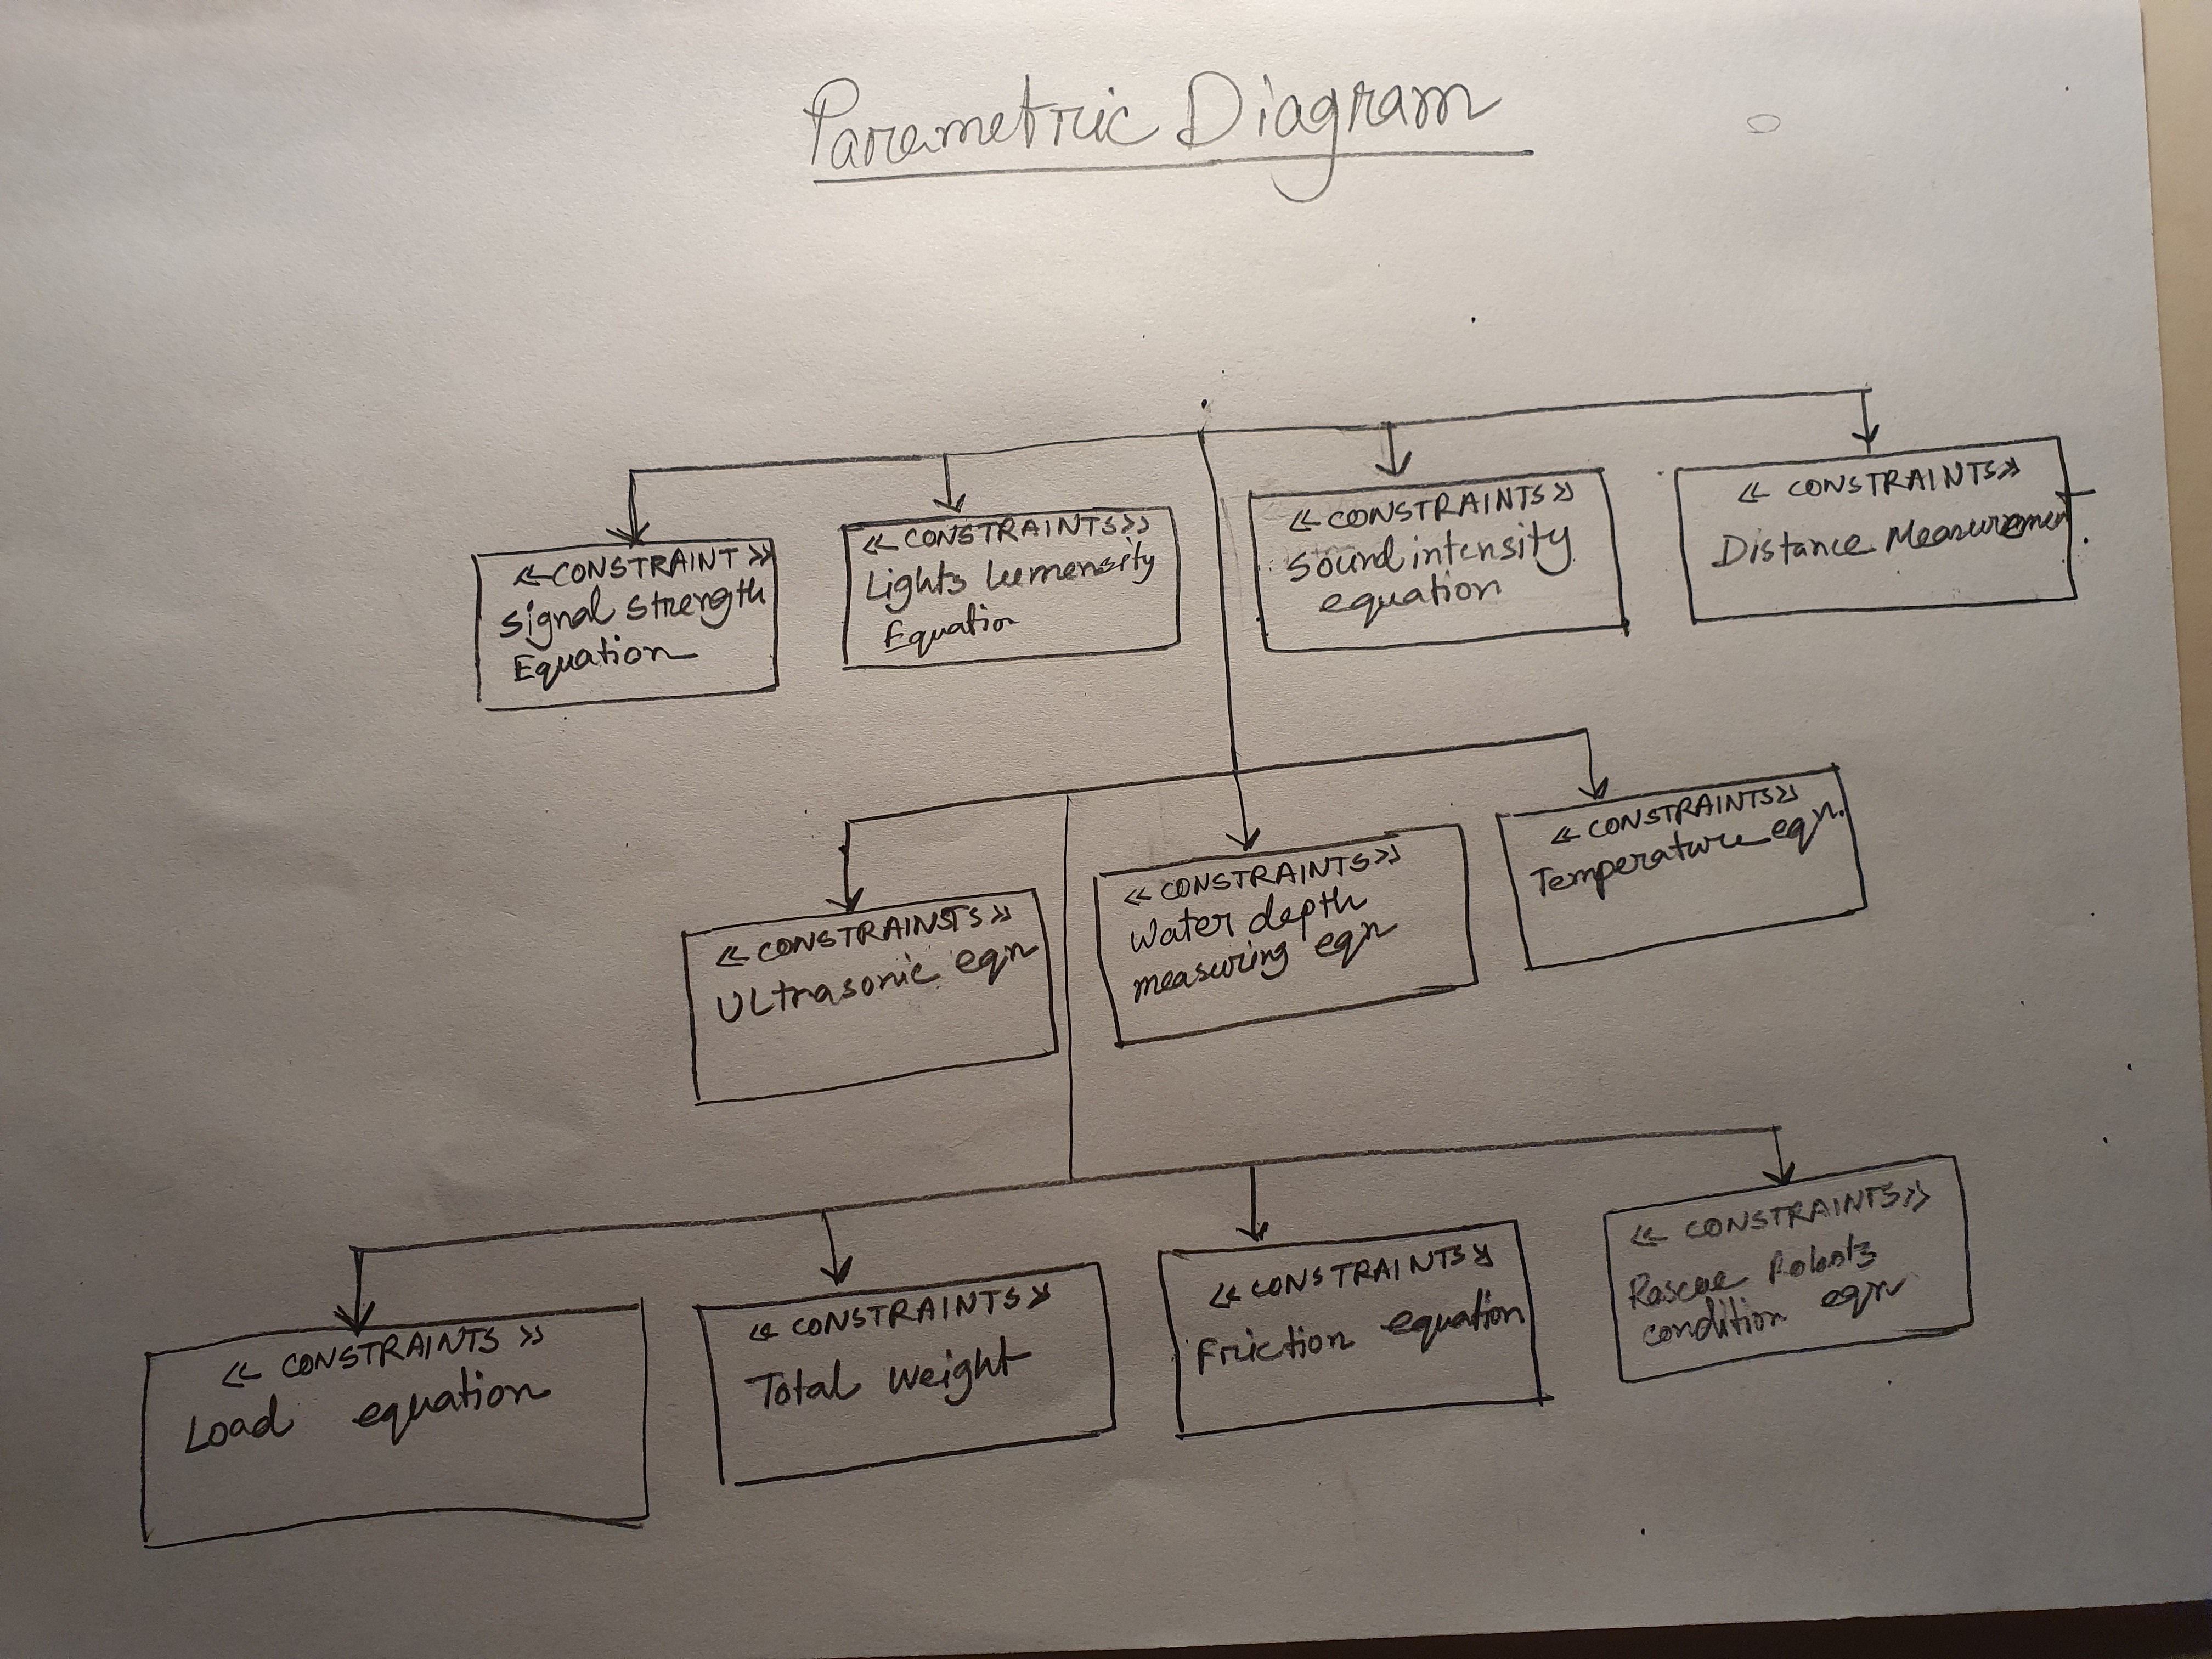 Parametric Diagram
<<CONSTRAINT>>
Signal Strength
Equation
<<CONSTRAINTS>>
Lights Lumensity
Equation
<<CONSTRAINTS>>
Sound intensity
equation
<<CONSTRAINTS>>
Distance Measurement
<<CONSTRAINSTS>>
ULtrasonic eqn
<<CONSTRAINTS>>
Water depth
measuring eqn
<<CONSTRAINTS>>
Temperature eqn.
<<CONSTRAINTS>>
Load equation
<<CONSTRAINTS>>
Total Weight
<<CONSTRAINTS>>
Friction equation
<<CONSTRAINTS>>
Rescue Robots
condition eqn